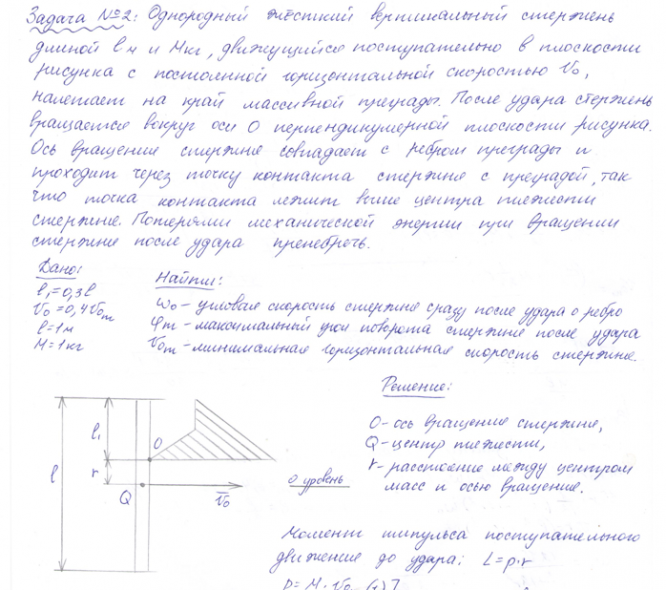 Задача №2: Однородный жёсткий вертикальный стержень
длиной l м и M кг, движущийся поступательно в плоскости
рисунка с постоянной горизонтальной скоростью V₀,
налетает на край массивной преграды. После удара стержень
вращается вокруг оси O перпендикулярной плоскости рисунка.
Ось вращения стержня совпадает с ребром преграды и
проходит через точку контакта стержня с преградой, так
что точка контакта лежит выше центра тяжести
стержня. Потерями механической энергии при вращении
стержня после удара пренебречь.
Дано:
l₁=0,3l
V₀=0,4V₀ₘ
l=1м
M=1кг
Найти:
ω₀ - угловая скорость стержня сразу после удара о ребро
φm - максимальный угол поворота стержня после удара
V₀ₘ - минимальная горизонтальная скорость стержня.
Решение:
O - ось вращения стержня,
Q - центр тяжести,
r - расстояние между центром
масс и осью вращения.
l
l₁
r
O
Q
V₀
0 уровень
Момент импульса поступательного
движения до удара: L=p·r
p=M·V₀ (1)